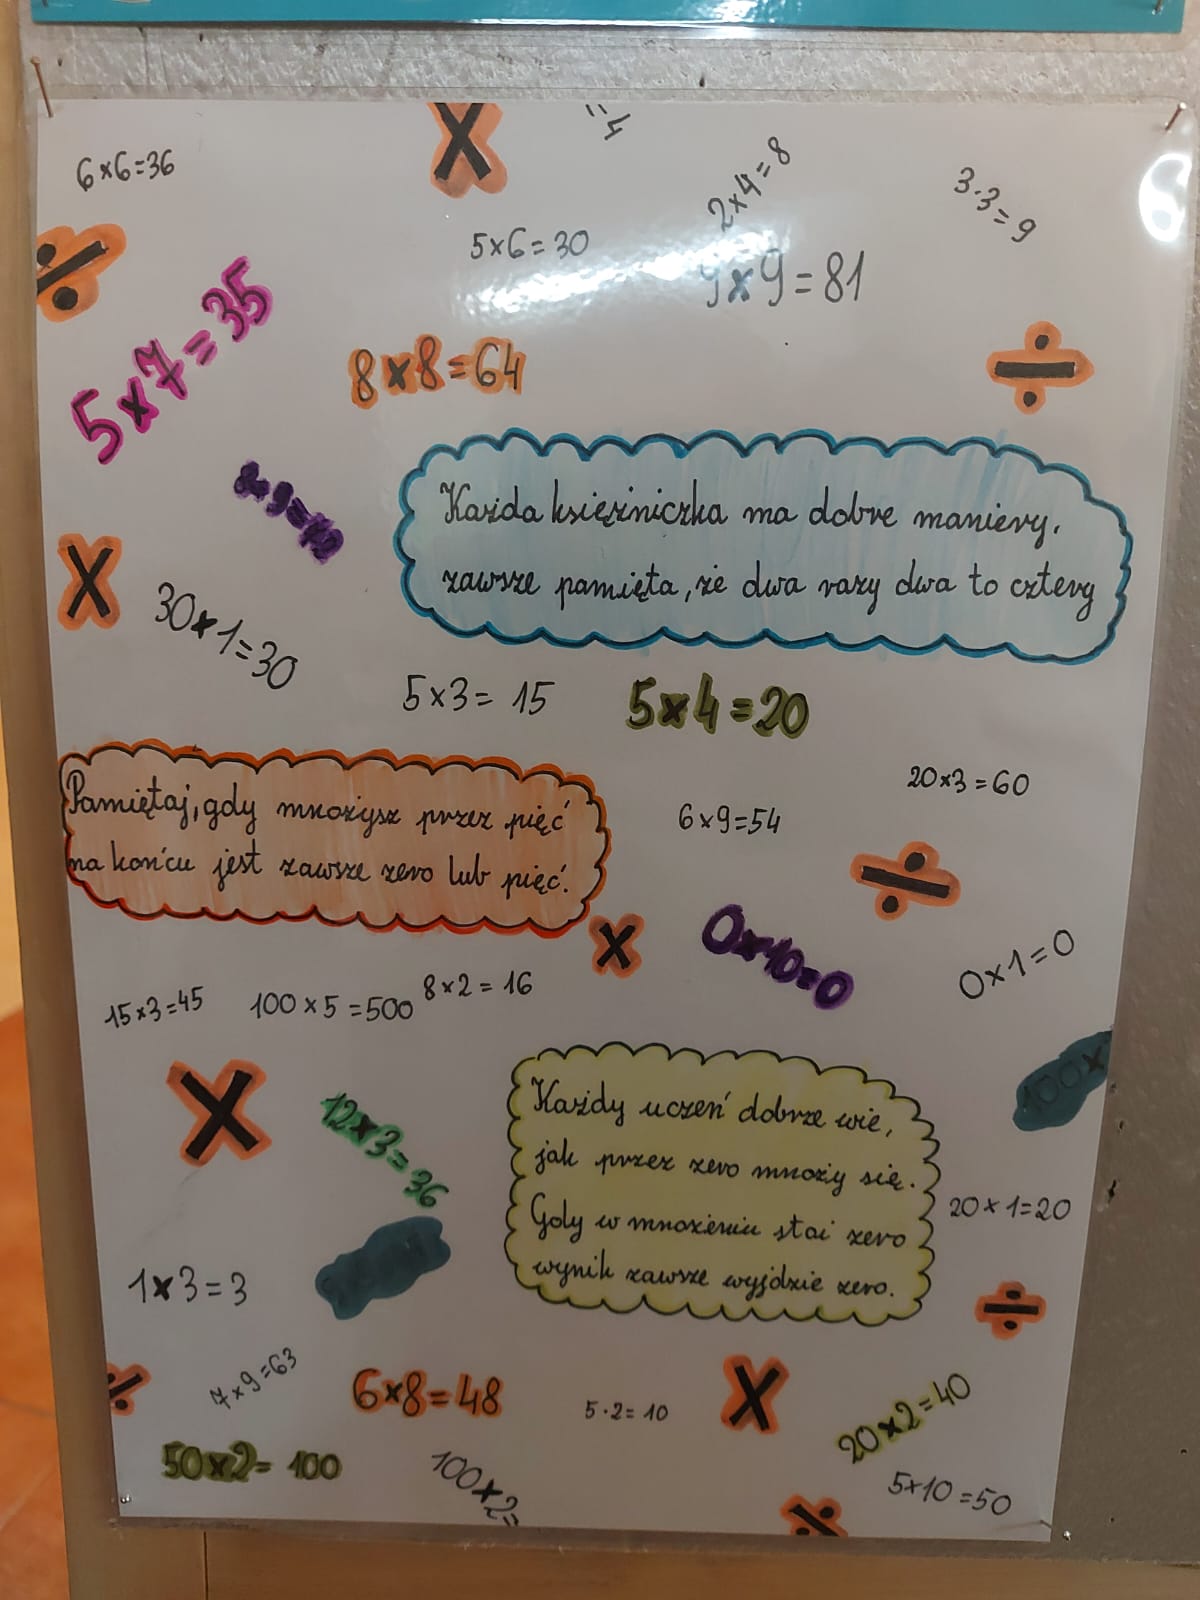 = 4
6×6=36
2×4=8
3·3=9
5×6=30
9×9=81
5×7=35
8×8=64
Każda księżniczka ma dobre maniery,
zawsze pamięta, że dwa razy dwa to cztery
30×1=30
5×3= 15
5×4=20
20×3=60
Pamiętaj, gdy mnożysz przez pięć
na końcu jest zawsze zero lub pięć.
6×9=54
0×10=0
0×1=0
15×3=45
100×5=500
8×2=16
100×
12×3=36
Każdy uczeń dobrze wie,
jak przez zero mnoży się.
Gdy w mnożeniu stoi zero
wynik zawsze wyjdzie zero.
20×1=20
1×3=3
7×9=63
6×8=48
5·2=10
20×2=40
50×2= 100
100×2=
5×10=50